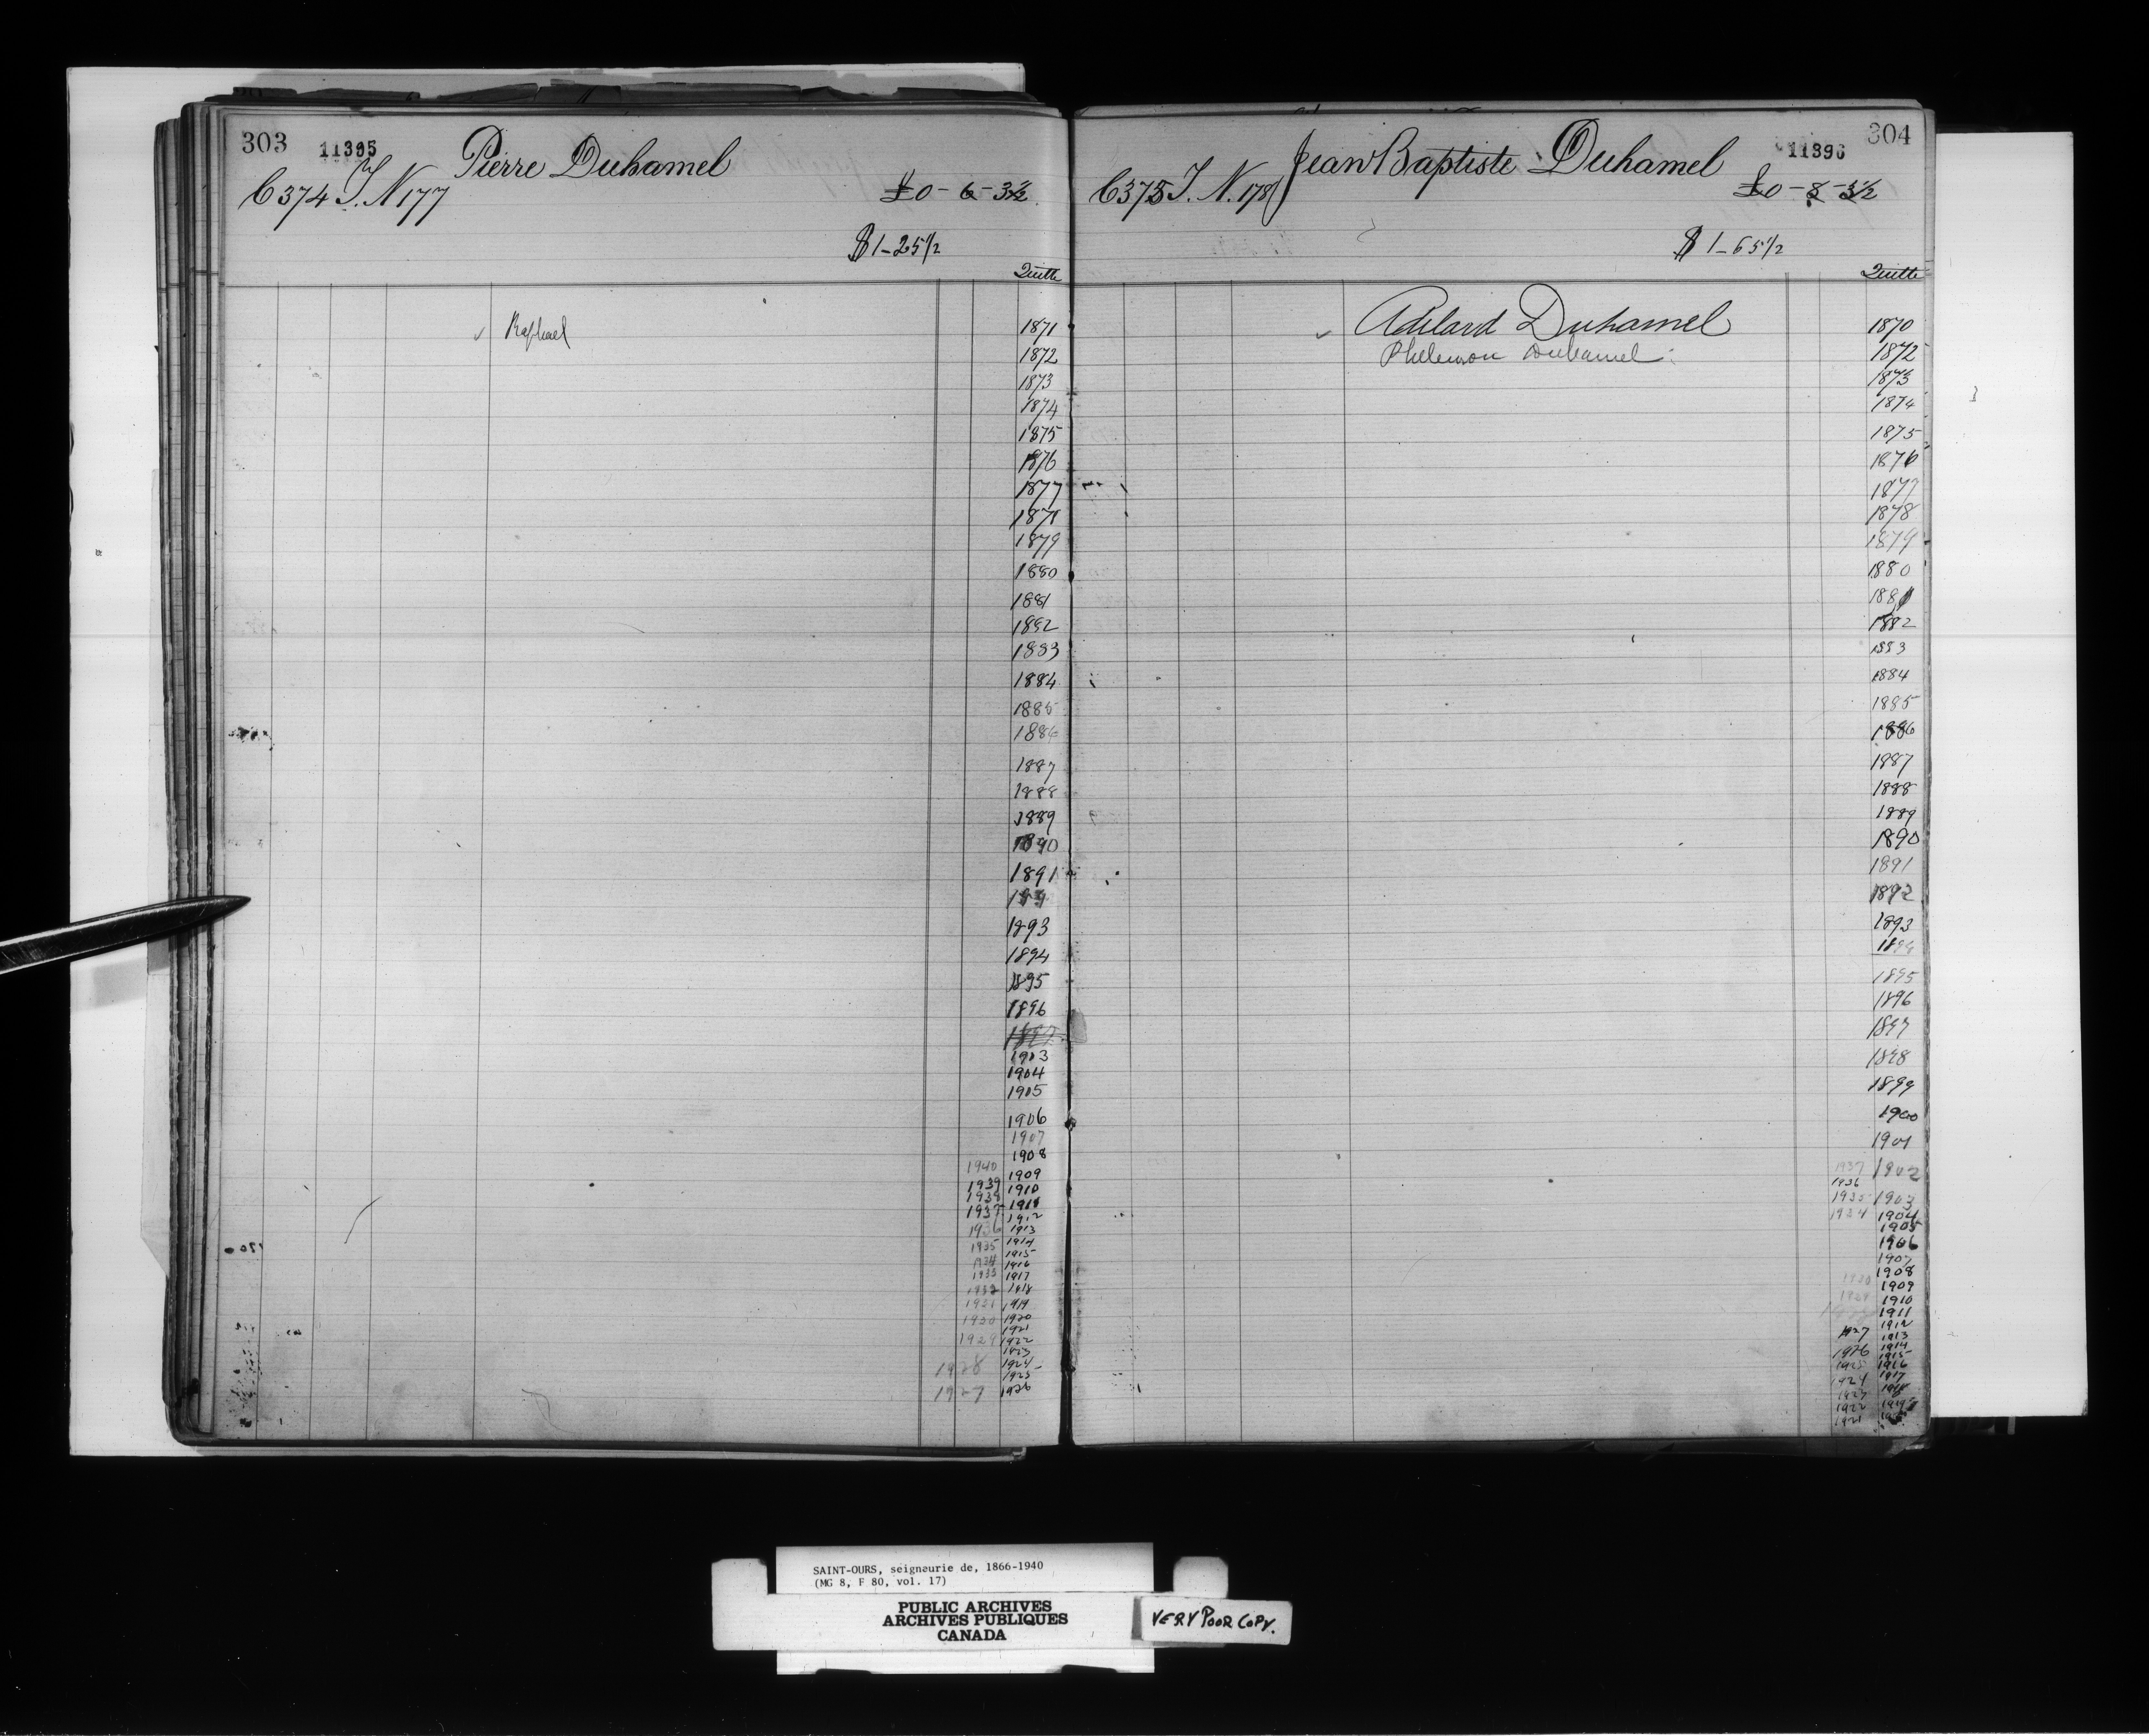 303 11395 Pierre Duhamel
C 374 T. N 177 £0-6-3½
$1-25½
Quitte
Raphael 1871
1872
1873
1874
1875
1876
1877
1878
1879
1880
1881
1882
1883
1884
1885
1886
1887
1888
1889
1890
1891
1893
1894
1895
1896
1897
1903
1904
1905
1906
1907
1908
1940 1909
1939 1910
1938 1911
1937 1912
1936 1913
1935 1914
1934 1915
1916
1933 1917
1932 1918
1931 1919
1930 1920
1921
1929 1922
1923
1928 1924
1925
1927 1926
Jean Baptiste Duhamel 11396 304
C 375 T. N. 178 £0-8-3½
$1-65½
Quitte
Adelard Duhamel 1870
Philemon Duhamel 1872
1873
1874
1875
1876
1877
1878
1879
1880
1881
1882
1883
1884
1885
1886
1887
1888
1889
1890
1891
1892
1893
1894
1895
1896
1897
1898
1899
1900
1901
1937 1902
1936
1935 1903
1934 1904
1905
1906
1907
1908
1909
1910
1911
1912
1927 1913
1914
1926 1915
1925 1916
1924 1917
1923 1918
1922 1919
1921
SAINT-OURS, seigneurie de, 1866-1940
(MG 8, F 80, vol. 17)
PUBLIC ARCHIVES
ARCHIVES PUBLIQUES
CANADA
VERY POOR COPY.